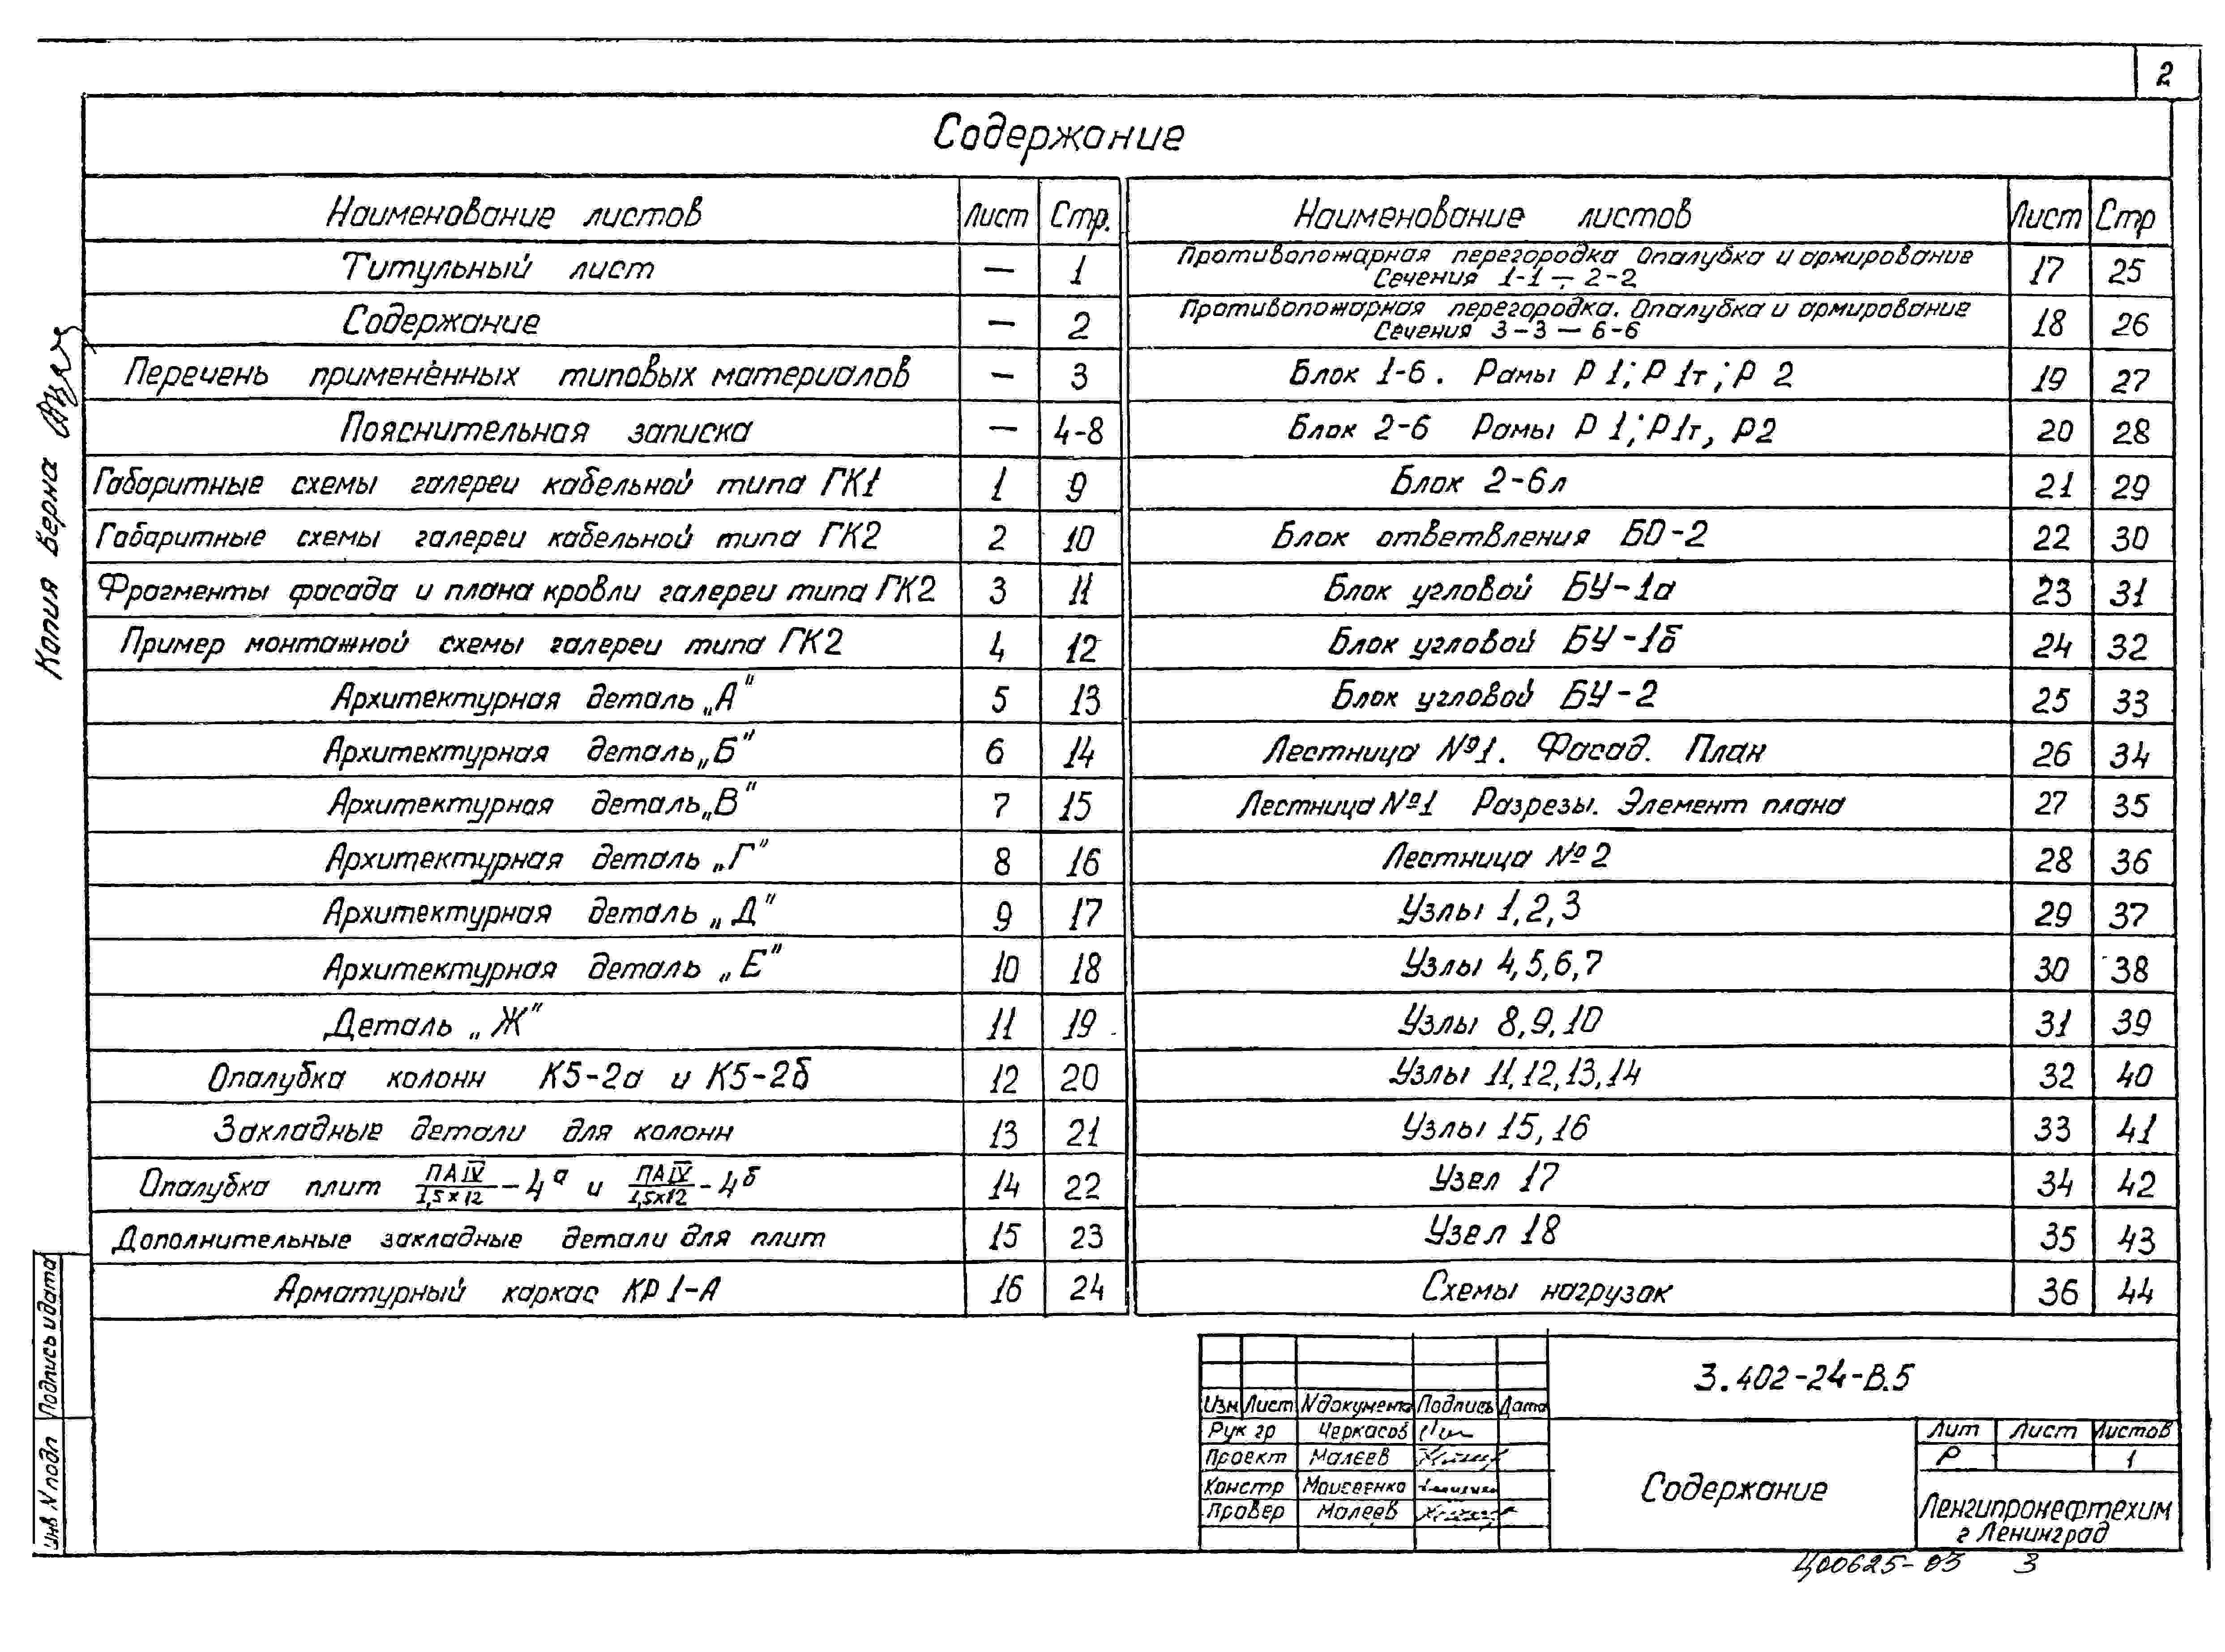 2
Содержание
Наименование листов Лист Стр.
Титульный лист — 1
Содержание — 2
Перечень применённых типовых материалов — 3
Пояснительная записка — 4-8
Габаритные схемы галереи кабельной типа ГК1 1 9
Габаритные схемы галереи кабельной типа ГК2 2 10
Фрагменты фасада и плана кровли галереи типа ГК2 3 11
Пример монтажной схемы галереи типа ГК2 4 12
Архитектурная деталь „А" 5 13
Архитектурная деталь „Б" 6 14
Архитектурная деталь „В" 7 15
Архитектурная деталь „Г" 8 16
Архитектурная деталь „Д" 9 17
Архитектурная деталь „Е" 10 18
Деталь „Ж" 11 19
Опалубка колонн К5-2а и К5-2б 12 20
Закладные детали для колонн 13 21
Опалубка плит ПАIV/1,5х12-4а и ПАIV/1,5х12-4б 14 22
Дополнительные закладные детали для плит 15 23
Арматурный каркас КР1-А 16 24
Наименование листов Лист Стр
Противопожарная перегородка Опалубка и армирование
Сечения 1-1 ÷ 2-2 17 25
Противопожарная перегородка. Опалубка и армирование
Сечения 3-3 — 6-6 18 26
Блок 1-6. Рамы Р1; Р1т; Р2 19 27
Блок 2-6 Рамы Р1; Р1т, Р2 20 28
Блок 2-6л 21 29
Блок ответвления БО-2 22 30
Блок угловой БУ-1а 23 31
Блок угловой БУ-1б 24 32
Блок угловой БУ-2 25 33
Лестница №1. Фасад. План 26 34
Лестница №1 Разрезы. Элемент плана 27 35
Лестница №2 28 36
Узлы 1,2,3 29 37
Узлы 4,5,6,7 30 38
Узлы 8,9,10 31 39
Узлы 11,12,13,14 32 40
Узлы 15,16 33 41
Узел 17 34 42
Узел 18 35 43
Схемы нагрузок 36 44
Копия верна
Подпись и дата
Инв N подл
3.402-24-В.5
Изм Лист N документа Подпись Дата
Рук гр Черкасов
Проект Малеев
Констр Моисеенко
Провер Малеев
Содержание
Лит Лист Листов
Р 1
Ленгипронефтехим
г Ленинград
Ц00625-03 3